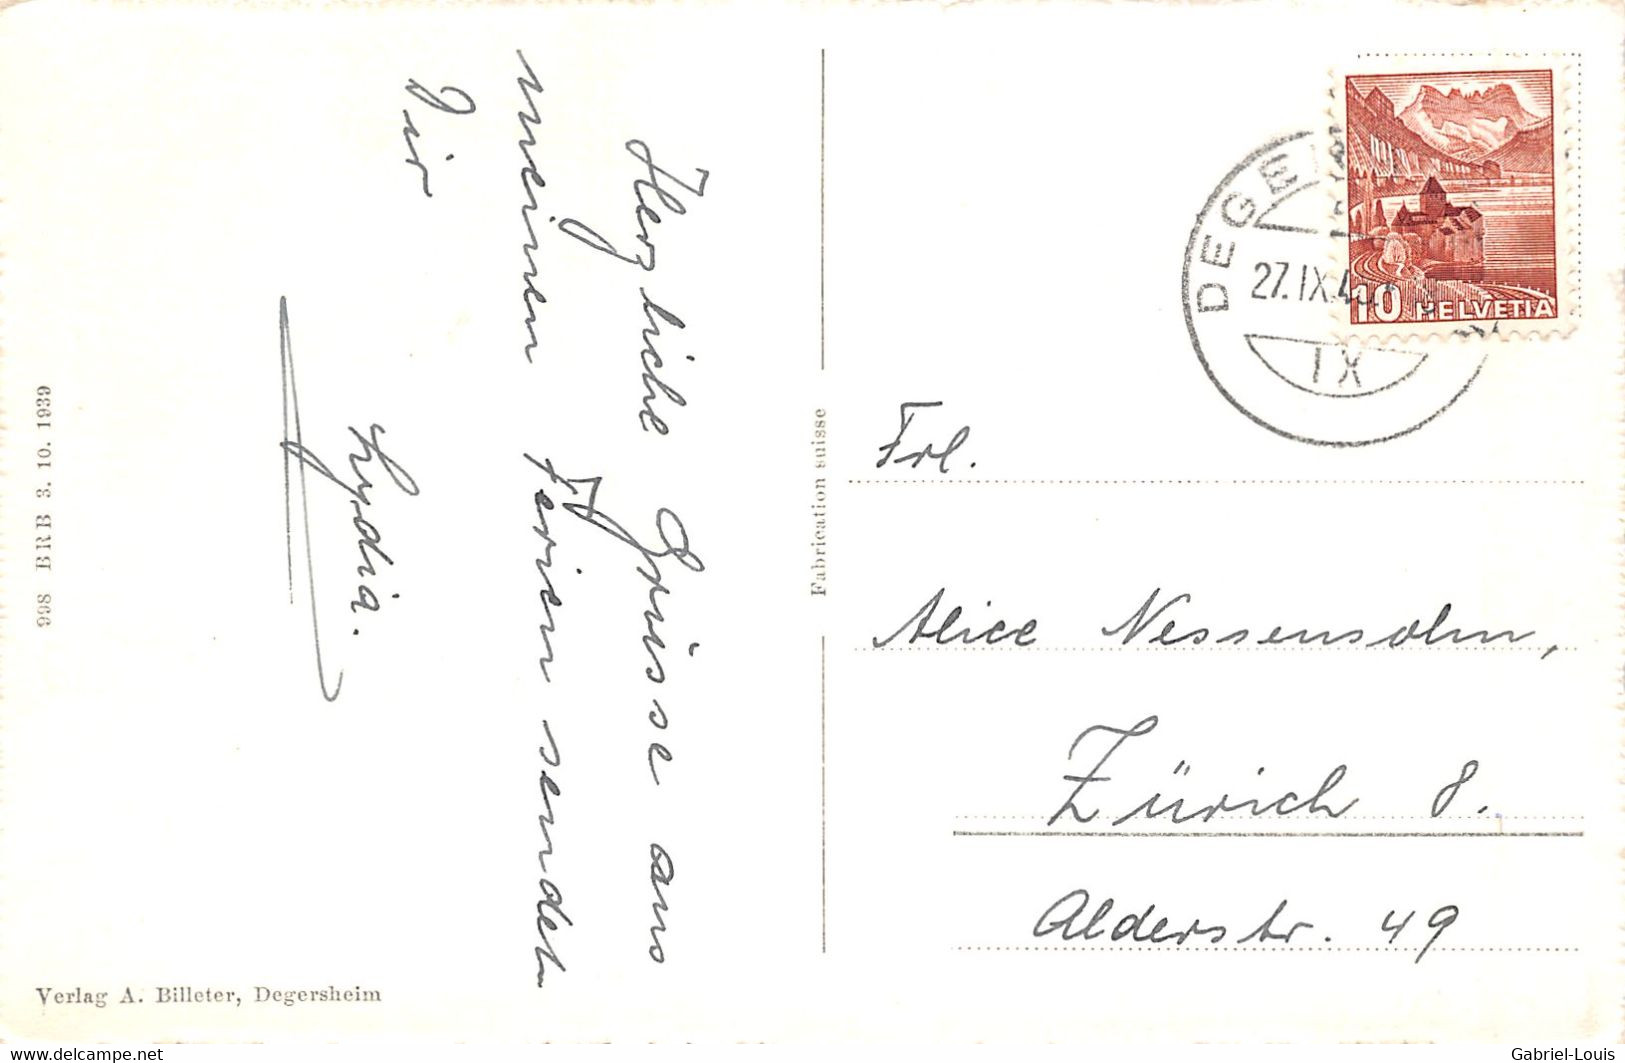 Herzliche Grüsse aus
meinen Ferien sendet
Dir
Lydia.
998 BRB 3. 10. 1939
Verlag A. Billeter, Degersheim
Fabrication suisse
DEGE
27. IX. 4
IX
10 HELVETIA
Frl.
Alice Nessensohn,
Zürich 8.
Alderstr. 49
delcampe.net
Gabriel-Louis